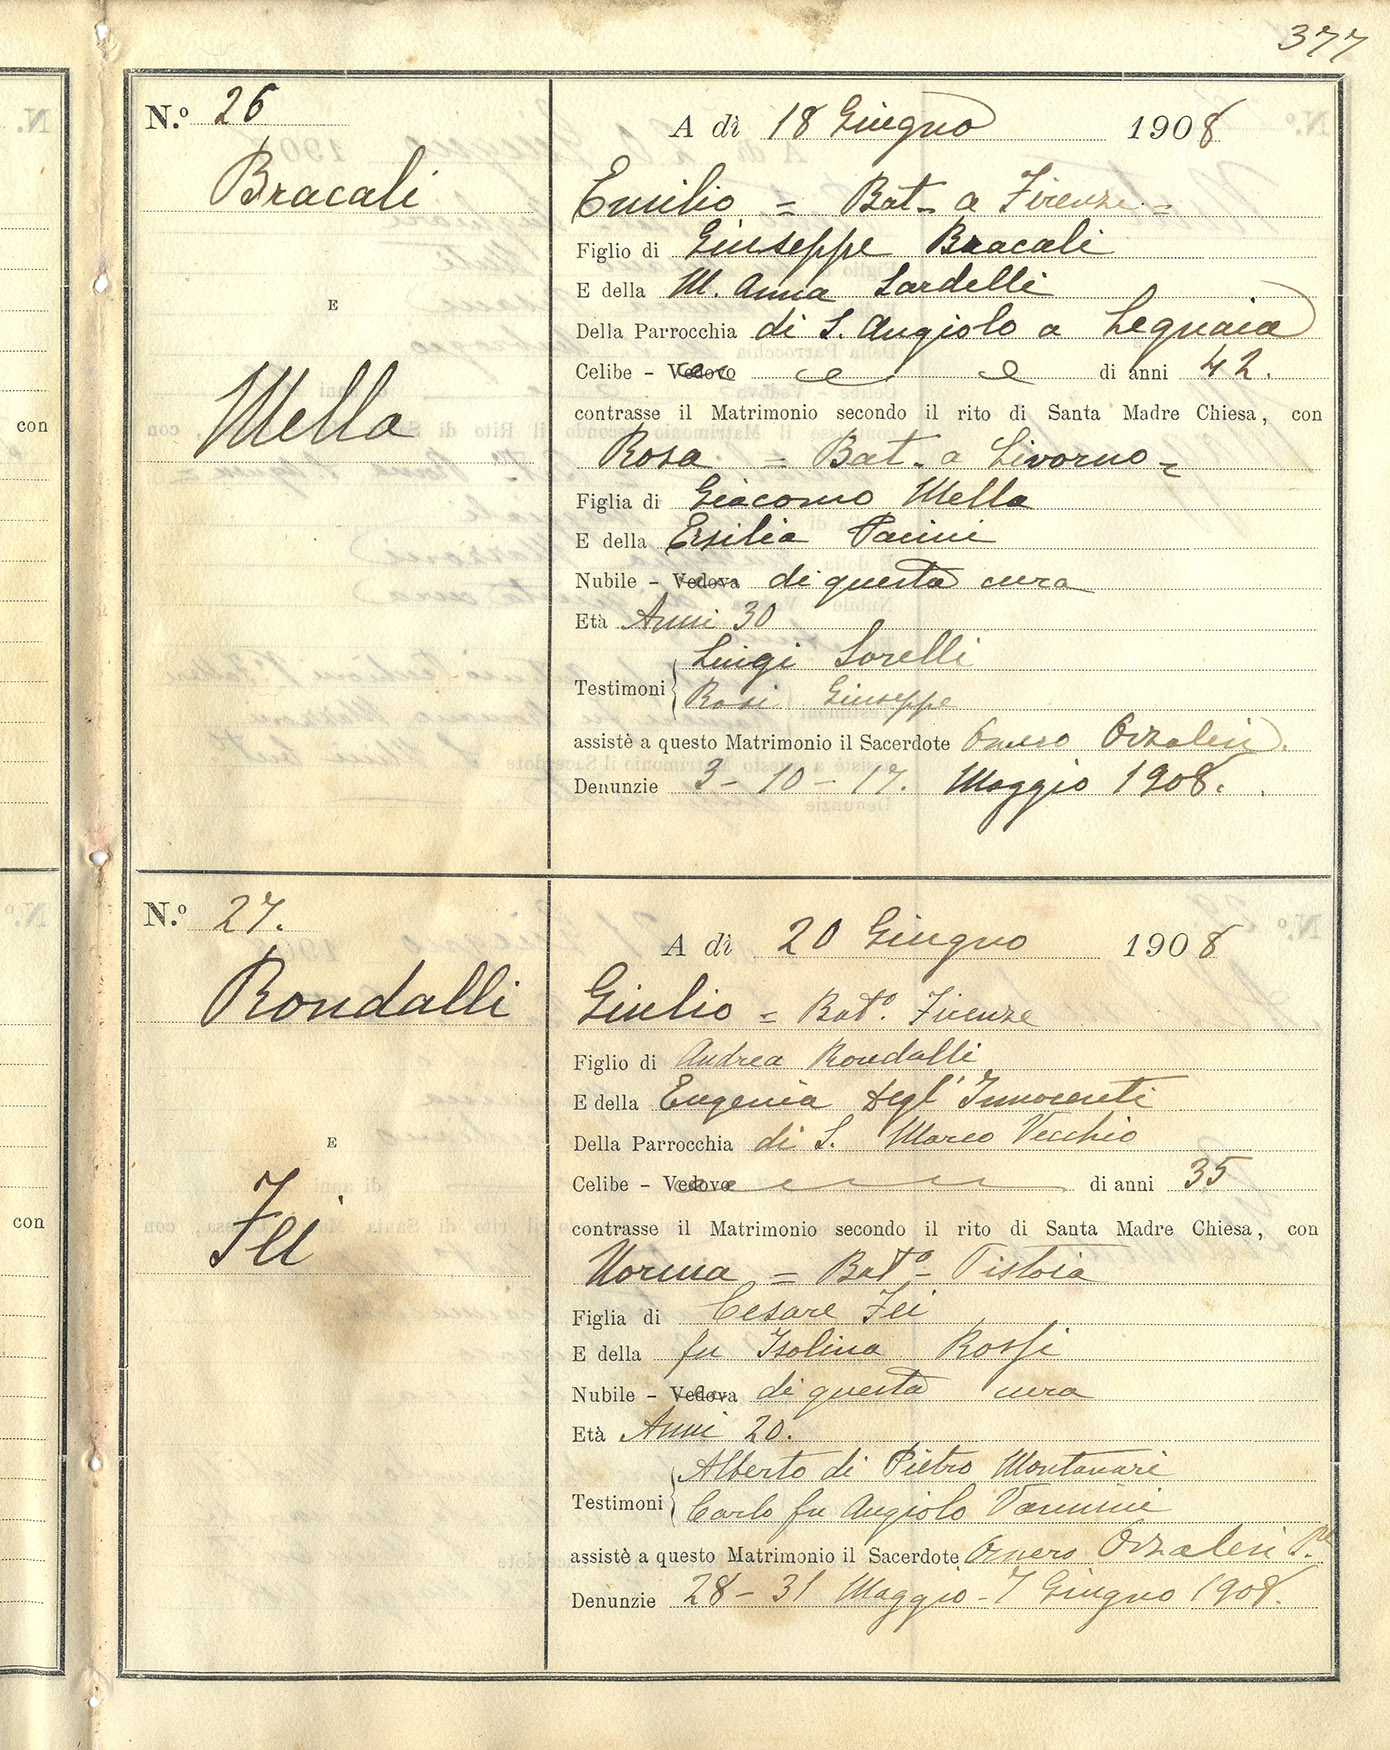 377
N.º 26
Bracali
E
Mella
A dì 18 Giugno 1908
Emilio = Bat. a Firenze =
Figlio di Giuseppe Bracali
E della M. Anna Sardelli
Della Parrocchia di S. Angiolo a Legnaia
Celibe - Vedovo di anni 42.
contrasse il Matrimonio secondo il rito di Santa Madre Chiesa, con
Rosa = Bat. a Livorno =
Figlia di Giacomo Mella
E della Ersilia Pacini
Nubile - Vedova di questa cura
Età Anni 30
Luigi Sorelli
Testimoni
Rosi Giuseppe
assistè a questo Matrimonio il Sacerdote Omero Orzalesi.
Denunzie 3 - 10 - 17. Maggio 1908.
N.º 27.
Rondalli
E
Fei
A dì 20 Giugno 1908
Giulio = Batº. Firenze
Figlio di Andrea Rondalli
E della Eugenia Degl'Innocenti
Della Parrocchia di S. Marco Vecchio
Celibe - Vedovo di anni 35
contrasse il Matrimonio secondo il rito di Santa Madre Chiesa, con
Norma = Batº - Pistoia
Figlia di Cesare Fei
E della fu Isolina Rossi
Nubile - Vedova di questa cura
Età Anni 20.
Alberto di Pietro Montanari
Testimoni
Carlo fu Angiolo Vannini
assistè a questo Matrimonio il Sacerdote Omero Orzalesi P.re
Denunzie 28 - 31 Maggio - 7 Giugno 1908.
con
con